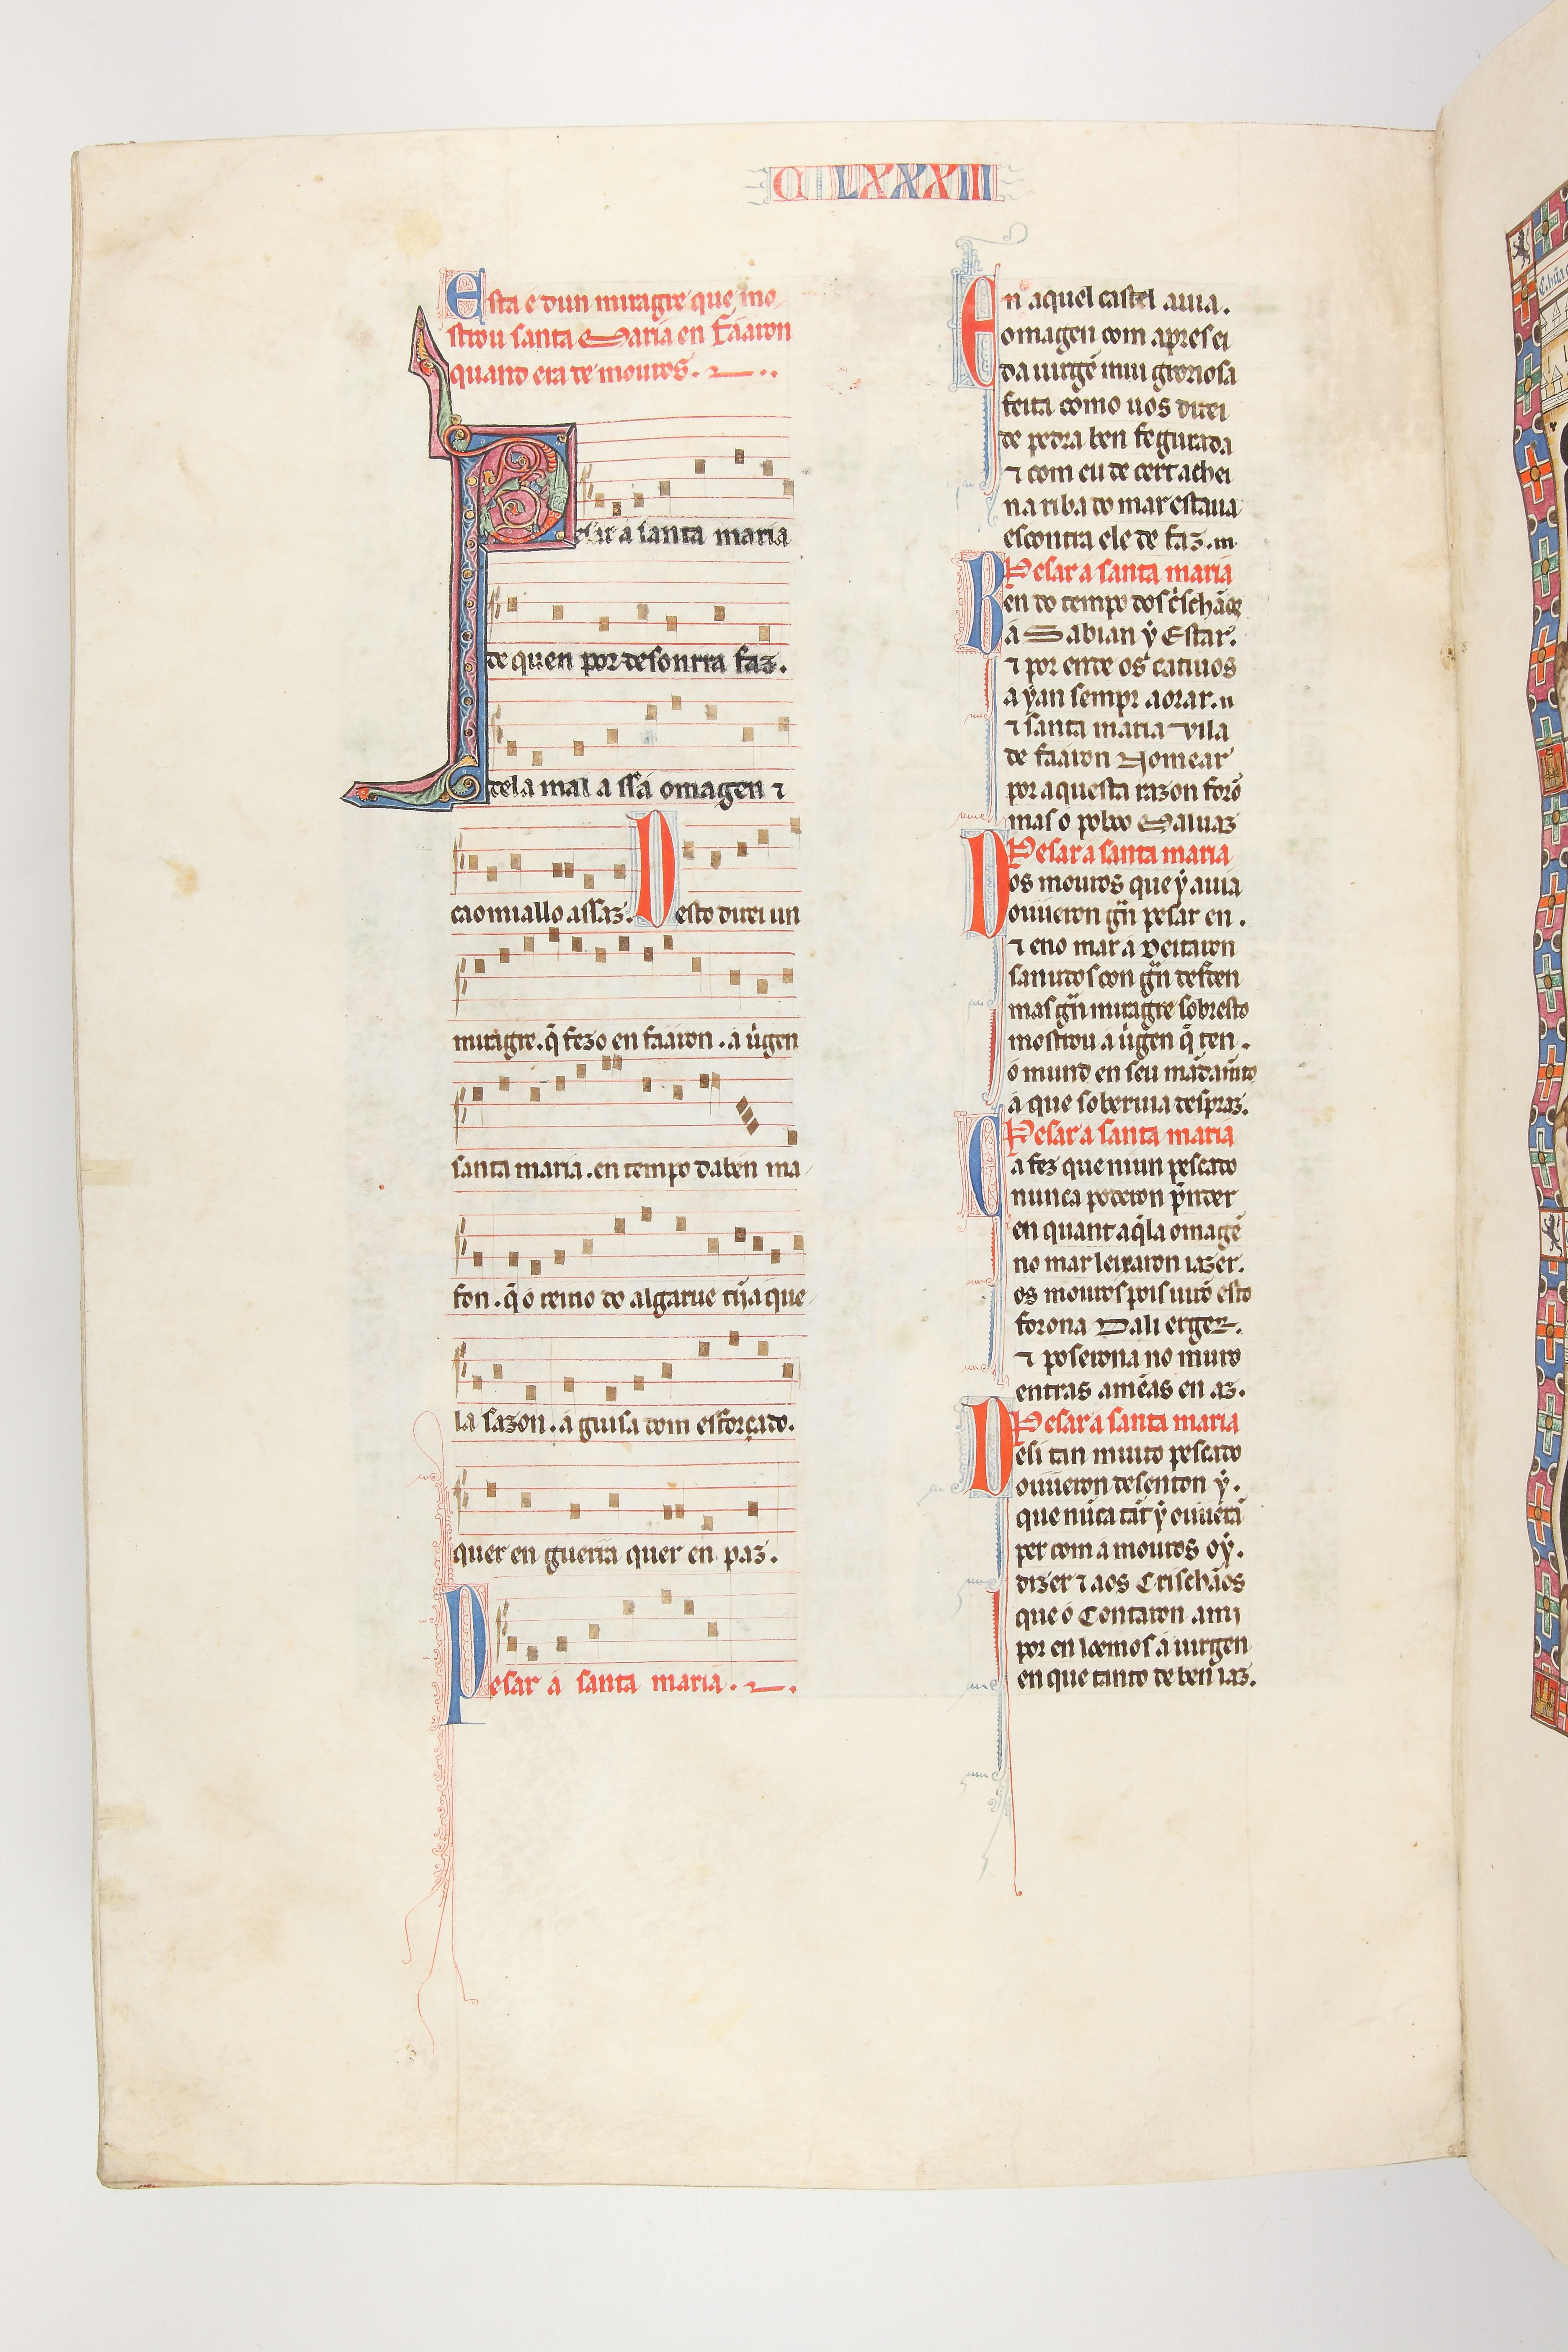 C LXXXIII
Esta e dun miragre que mo
strou santa Maria en Fáaron
quand era de mouros.
Pesar á santa maria
de quen por desonrra faz.
dela mal a ssa omagen ⁊
caomiallo assaz. Desto direi un
miragre. q̄ fezo en fáaron. a uirgen
santa maria. en tempo dabēn ma
fon. q̄ o reino do algarue tijȧ que
la sazon. a guisa dom esforçado.
quer en guerra quer en paz.
Pesar á santa maria.
En aquel castel auia.
omagen com apres ei
da uirgē mui groriosa
feita como uos direi
de pedra ben fegurada
⁊ com eu de cert achei
na riba do mar estaua
escontra ele de faz.
Pesar a santa maria
Ben do tempo dos c̄schãos
á Sabian ẏ Estar.
⁊ por ende os catiuos
a ẏan sempr aorar.
⁊ santa maria vila
de fáaron Nomear
por aquesta razon forō
mas o poboo Saluaz
Pesar a santa maria
Dos mouros que ẏ auia
ouueron gn̄ pesar en.
⁊ eno mar a Deitaron
sannudos con gn̄ desden
mas gn̄ miragre sobresto
mostrou a uirgen q̄ ten.
o mund en seu mādamēto
a que soberuia despraz.
Pesar a santa maria
Ca fez que niun pescado
nunca poderon p̄nder
en quant aq̄la omagē
no mar leixaron iazer.
os mouros pois uirō esto
forona Dali erger.
⁊ poserona no muro
entras amēas en az.
Pesar a santa maria
Desi tan muito pescado
ouueron desenton ẏ.
que nūca tāt ẏ ouuerā
per com a mouros oẏ.
dizer ⁊ aos Crischãos
que o Contaron ami
por en loemos á uirgen
en que tanto de ben iaz.